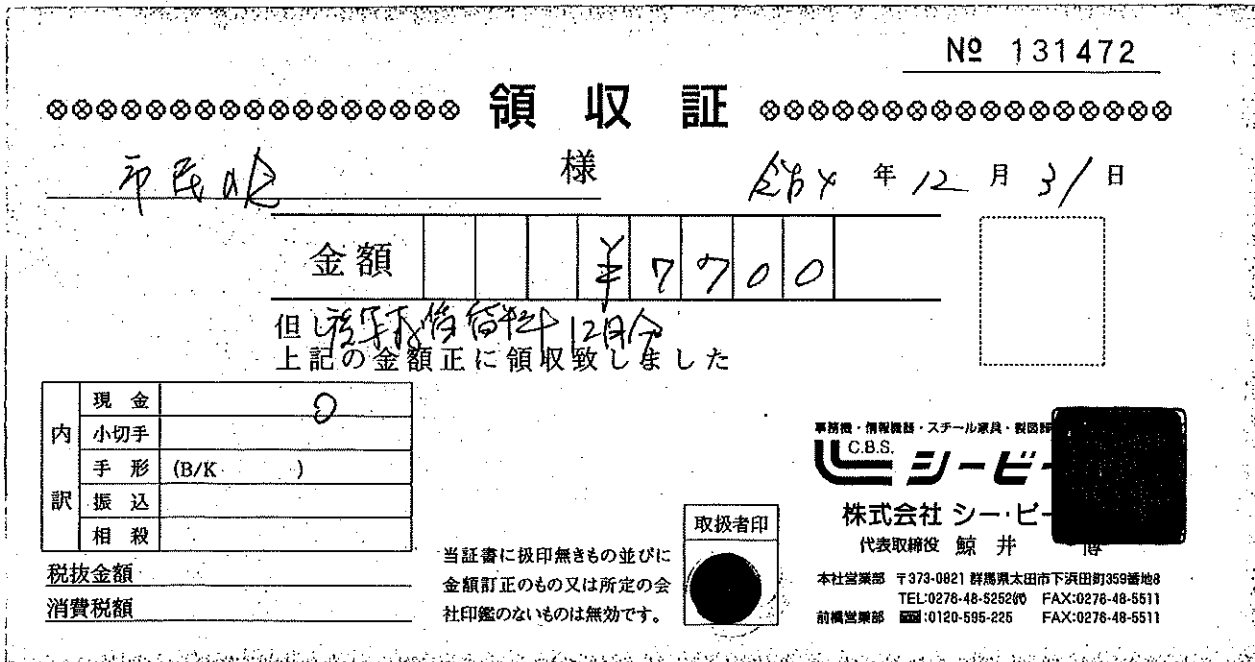 № 131472
領収証
市民の会 様 令和4年12月31日
金額 ¥7700
但し 複写機賃借料12月分
上記の金額正に領収致しました
内訳
現金 0
小切手
手形 (B/K )
振込
相殺
税抜金額
消費税額
当証書に扱印無きもの並びに
金額訂正のもの又は所定の会
社印鑑のないものは無効です。
取扱者印
事務機・情報機器・スチール家具・製図
C.B.S. シービー
株式会社 シー・ビー
代表取締役 鯨井 博
本社営業部 〒373-0821 群馬県太田市下浜田町359番地8
TEL:0276-48-5252㈹ FAX:0276-48-5511
前橋営業部 :0120-595-225 FAX:0276-48-5511